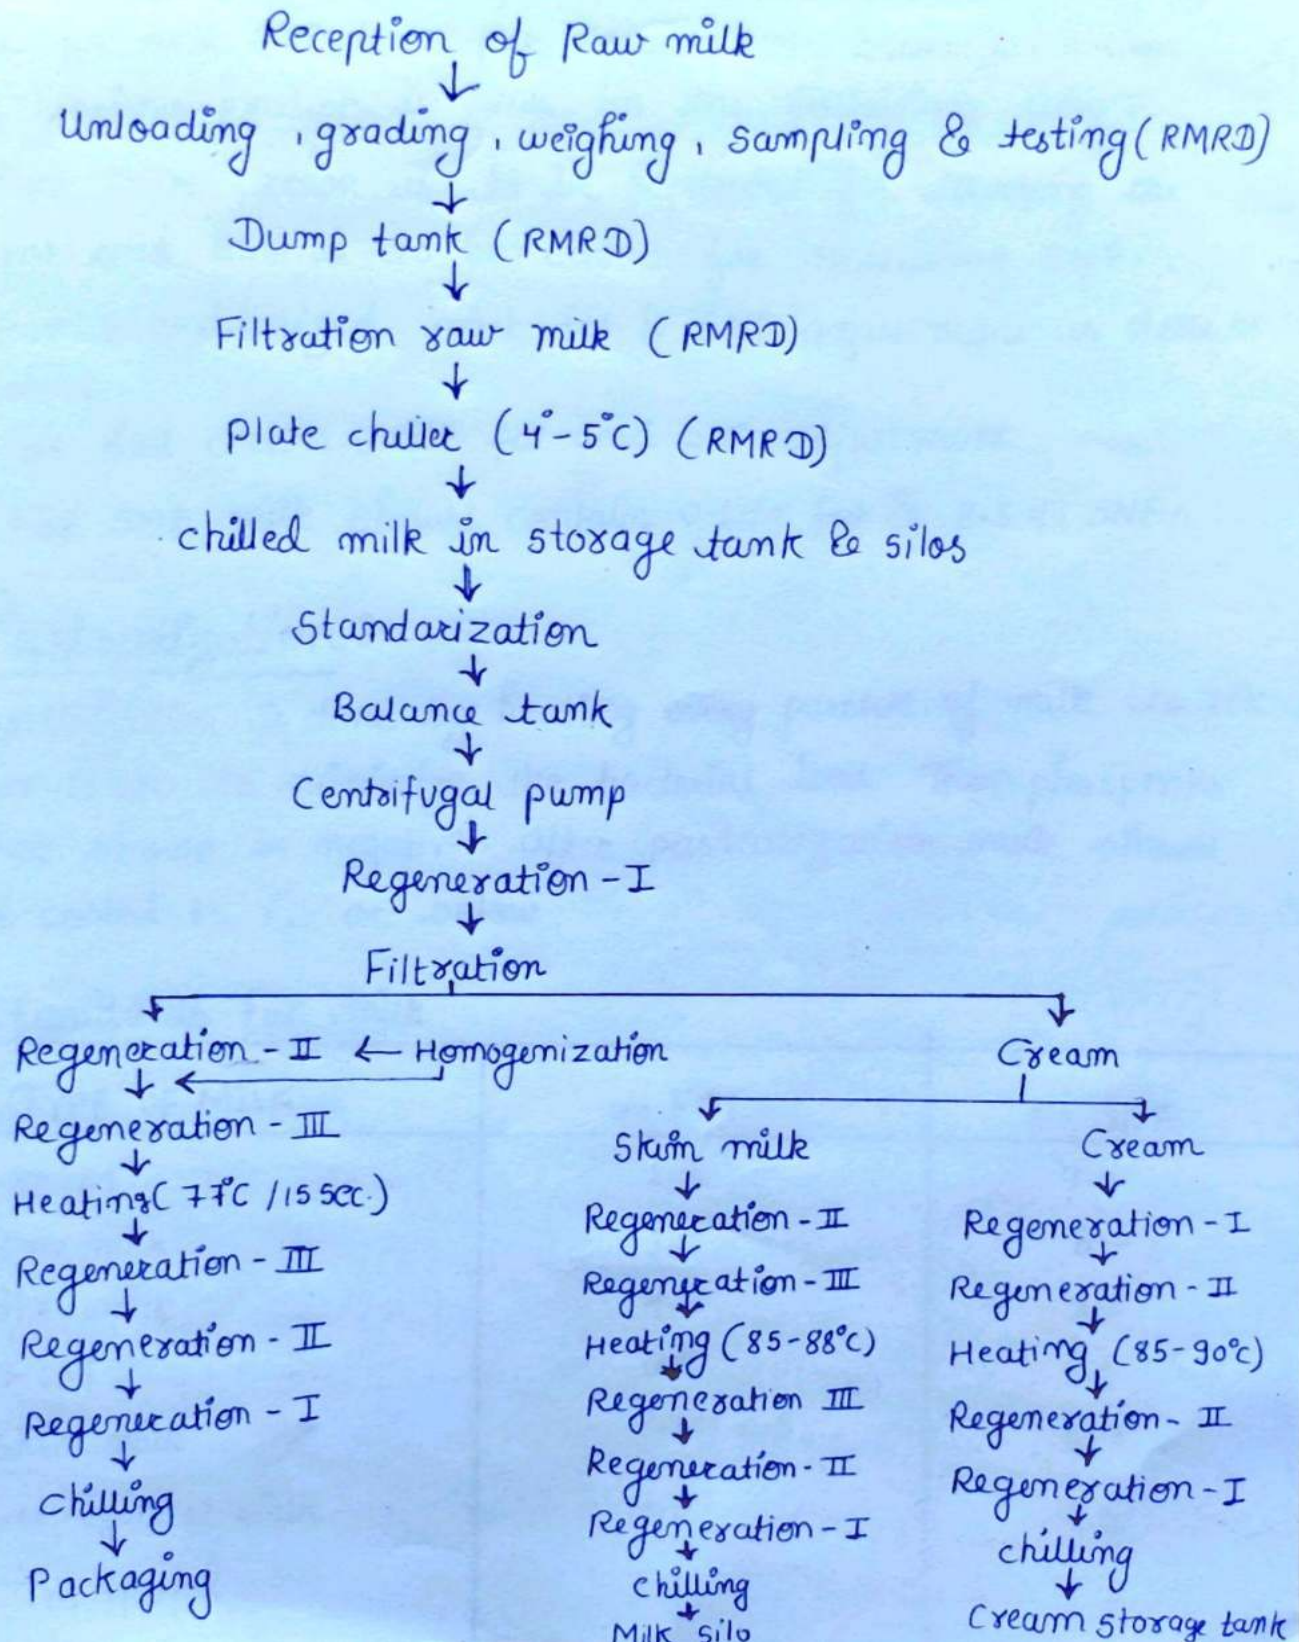 Reception of Raw milk
Unloading, grading, weighing, sampling & testing (RMRD)
Dump tank (RMRD)
Filtration raw milk (RMRD)
Plate chiller (4°-5°C) (RMRD)
chilled milk in storage tank & silos
Standarization
Balance tank
Centrifugal pump
Regeneration - I
Filtration
Regeneration - II ← Homogenization
Regeneration - III
Heating (77°C / 15 sec.)
Regeneration - III
Regeneration - II
Regeneration - I
Chilling
Packaging
Cream
Skim milk
Regeneration - II
Regeneration - III
Heating (85-88°C)
Regeneration III
Regeneration - II
Regeneration - I
Chilling
Milk silo
Cream
Regeneration - I
Regeneration - II
Heating (85-90°C)
Regeneration - II
Regeneration - I
chilling
Cream storage tank